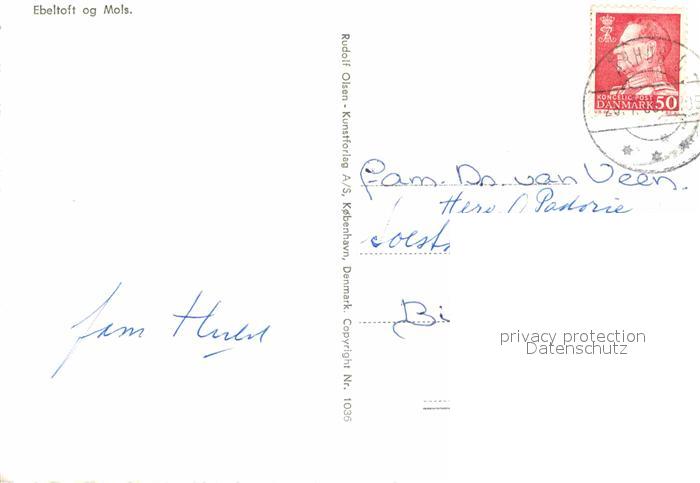 Ebeltoft og Mols.
KONGELIG POST
DANMARK 50
Rudolf Olsen - Kunstforlag A/S, København, Danmark. Copyright Nr. 1036
fam. Dr. van Veen.
Hero Padorie
Soest
Bi
privacy protection
Datenschutz
fam